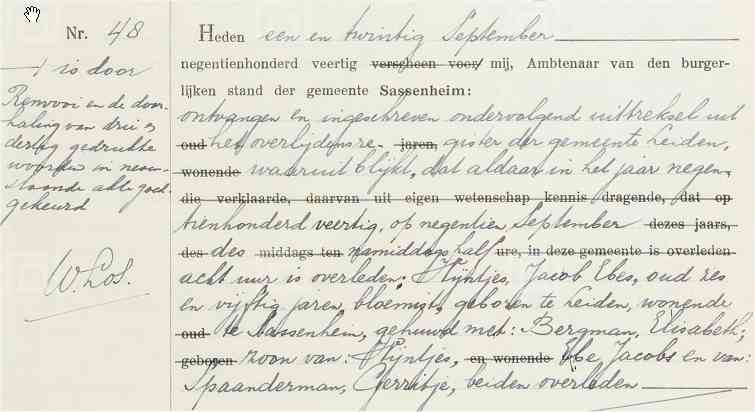 Nr. 48
+ is door
Renvooi en de door-
haling van drie en
dertig gedrukte
woorden in neven-
staande akte goed-
gekeurd
W. Los.
Heden een en twintig September
negentienhonderd veertig verscheen voor mij, Ambtenaar van den burger-
lijken stand der gemeente Sassenheim:
ontvangen en ingeschreven ondervolgend uittreksel uit
oud het overlijdensre- jaren, gister der gemeente Leiden,
wonende waaruit blijkt, dat aldaar in het jaar negen-
die verklaarde, daarvan uit eigen wetenschap kennis dragende, dat op
tienhonderd veertig, op negentien September dezes jaars,
des des middags ten namiddags half ure, in deze gemeente is overleden
acht uur is overleden: Hijntjes, Jacob Ebes, oud zes
en vijftig jaren, bloemist, geboren te Leiden, wonende
oud te Sassenheim, gehuwd met: Bergman, Elisabeth;
geboren zoon van: Hijntjes, en wonende Ebe, Jacobs en van:
Spaanderman, Gerritje, beiden overleden